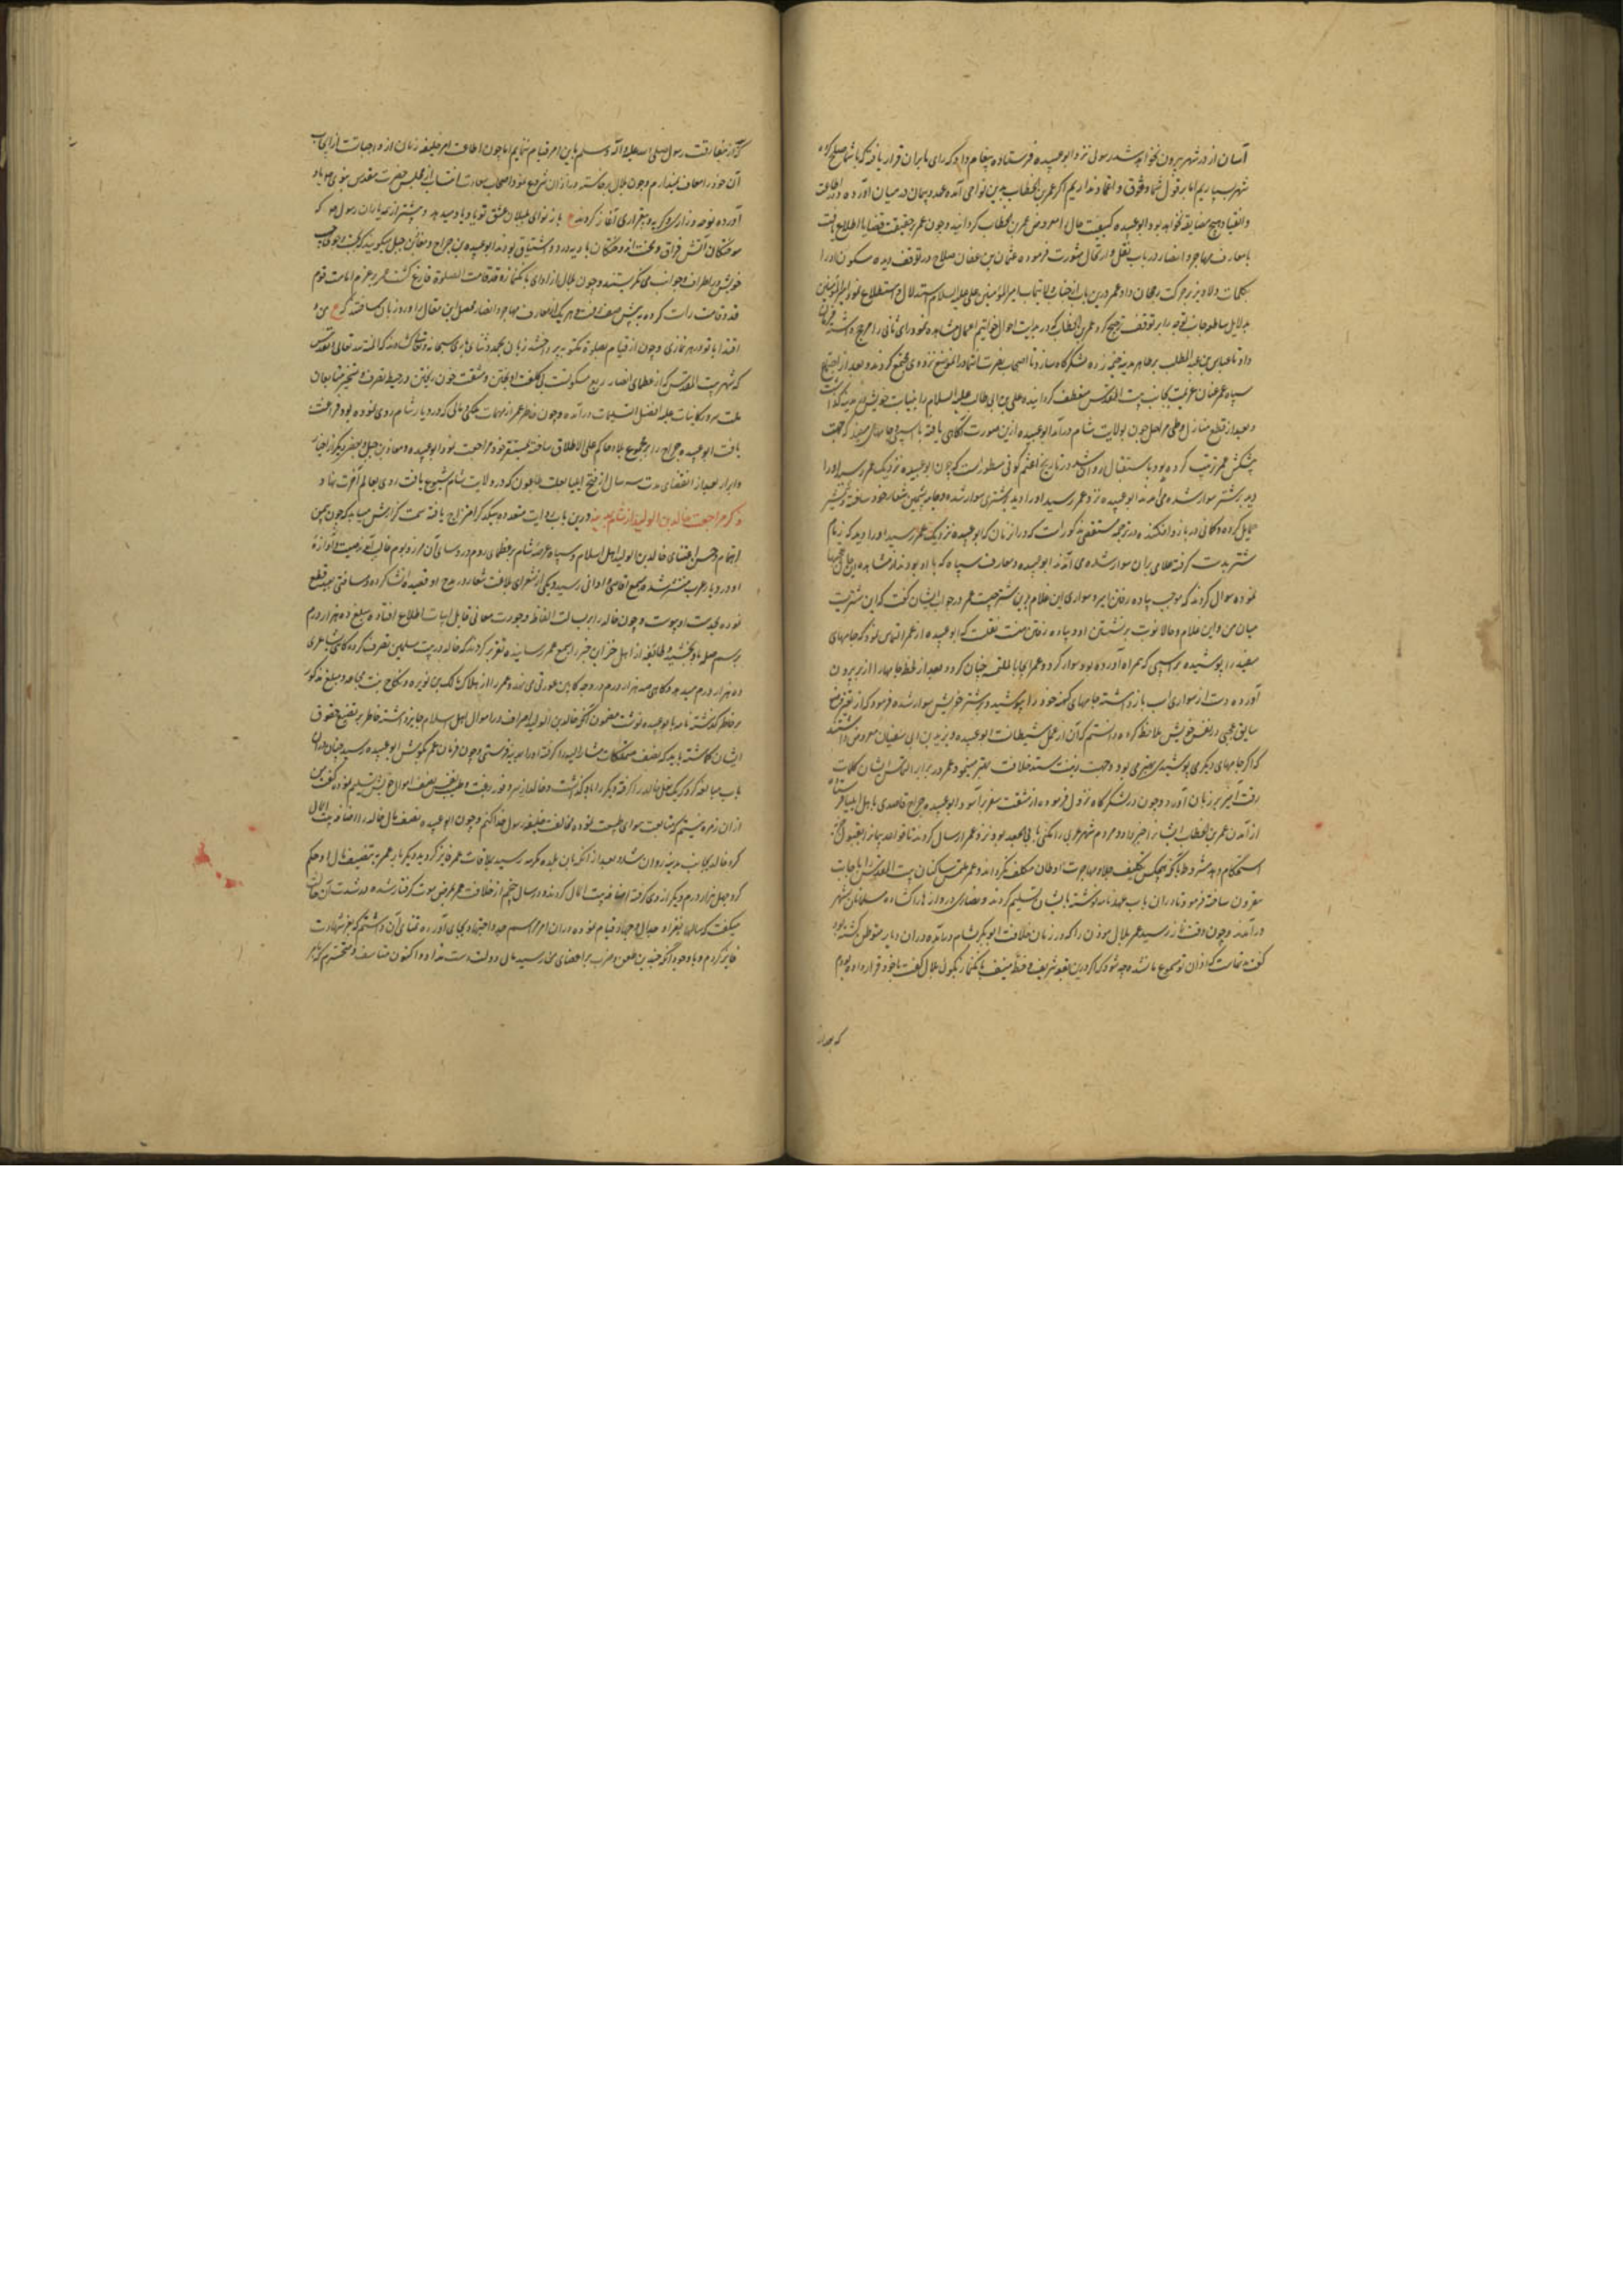 آسان از در شهر بیرون نخواهد شد رسولی نزد ابوعبیده فرستاده پیغام داد که رای ما بران قرار یافته که با شما صلح کرده
شهر بسپاریم اما بر قول شما وثوق و اعتماد نداریم اگر عمر بن الخطاب بدین نواحی آمده عهد و پیمان در میان آورد در اطاعت
و انقیاد هیچ مضایقه نخواهد بود و ابوعبیده کیفیت حال را معروض عمر بن الخطاب گردانید و چون عمر بر حقیقت قضایا اطلاع یافت
با معارف مهاجر و انصار در باب نقل و ارتحال مشورت فرموده عثمان بن عفان صلاح در توقف دیده سکون او را
بکلمات دلاویز بر حرکت رجحان داد و عمر درین باب از جناب ولایتماب امیر المومنین علی علیه السلام استدلال و استطلاع نمود امیرالمومنین
بدلایل توجه را بر توقف ترجیح کرد و عمر بن الخطاب که در بدایت احوال خواتیم اعمال مشاهده نمود رای ثانی را مرجح داشته فرمان
داد تا عباس بن عبد المطلب بر ظاهر مدینه خیمه زده لشکرگاه سازد تا اصحاب نزد وی مجتمع گردند و بعد از اجتماع
سپاه عمر عنان عزیمت بجانب بیت المقدس منعطف گردانیده علی بن ابی طالب علیه السلام را بنیابت خویش در مدینه گذاشت
و بعد از قطع منازل و طی مراحل چون بولایت شام درآمد ابوعبیده ازین صورت آگاهی یافته با اسپی و جامهای سفید که جهت
پیشکش عمر ترتیب کرده بود باستقبال روان شد در تاریخ اعثم کوفی مسطور است که چون ابوعبیده نزدیک عمر رسید او را
دید بر شتر سوار شده می آمد ابوعبیده نزد عمر رسید او را دید بر شتری سوار شده و جامه پشمین شعار خود ساخته و شمشیر
حمایل کرده و کمانی در بازو افکنده و در ترجمه مستقصی مذکور است که در ان زمان که ابوعبیده نزدیک عمر رسید او را دید که زمام
شتر بدست گرفته غلامی بران سوار شده می آمدند ابوعبیده و معارف سپاه که با او بودند از مشاهده این حال تعجبها
نموده سوال کردند که موجب پیاده رفتن امیر و سواری این غلام برین شتر چیست عمر در جواب ایشان گفت که این شتریست
میان من و این غلام و حالا نوبت برنشستن او و پیاده رفتن منست نقلست که ابوعبیده از عمر التماس نمود که جامهای
سفید را پوشیده بر اسپی که همراه آورده بود سوار گردد و عمر اجابت ملتمسه چنان کرد و بعد از لحظه جامها را از بر بیرون
آورده دست از سواری اسب باز داشته جامهای کهنه خود را پوشید و بر شتر خویش سوار شده فرمود که از تغیر وضع
سابق عجبی در نفس خویش ملاحظه کرده دانستم که آن از عمل شیطانست ابوعبیده و یزید بن ابی سفیان معروض داشتند
که اگر جامهای دیگر می پوشیدی بهتر می بود و جهت رفعت مسند خلافت بهتر مینمود و عمر در برابر التماس ایشان کلمات
رقت آمیز بر زبان آورد و چون در لشکرگاه نزول فرموده از مشقت سفر برآسود ابوعبیده جراح قاصدی باهل ایلیا فرستاد تا
از آمدن عمر بن الخطاب ایشانرا خبر داد و مردم شهر مردی را مکنی بابی الجعد بود نزد عمر ارسال کردند تا قواعد پیمانرا بقبول جزیه
استحکام دهد مشروط بانکه هیچکس بتکلیف جلا و مهاجرت اوطان مکلف نگرداند و عمر ملتمس ساکنان بیت المقدس را باجابت
مقرون ساخته فرمود تا در ان باب عهدنامه نوشته بایشان تسلیم کردند و نصاری دروازها را گشاده مسلمانان بشهر
درآمدند و چون وقت نماز رسید عمر بلال موذن را که در زمان خلافت ابوبکر بشام درآمده در ان دیار متوطن گشته بود
گفت مدتست که اذان تو مسموع ما نشده چه شود که اگر درین بقعه شریف و خطه منیف بانک نماز بگوئی بلال گفت با خود قرار داده بودم
که بعد از
که از مفارقت رسول صلی الله علیه و آله و سلم باین امر قیام ننمایم اما چون اطاعت امر خلیفه زمان از واجباتست از ایجاب
آن خود را معاف نمیدارم و چون بلال برخاسته در اذان شروع نمود اصحاب سعادت انتساب از مجلس حضرت مقدس نبوی ص یاد
آورده نوحه و زاری و گریه و بیقراری آغاز کردند ع باز نوای بلبلان عشق تو یاد میدهد و بیشتر از همه یاران رسول ص که
سوختگان آتش فراق و بادیه درد و اشتیاق بودند ابوعبیده بن جراح و معاذ بن جبل میگویند که بطلب محبوب
خویش در اطراف و جوانب می نگریستند و چون بلال از ادای بانک نماز و قد قامت الصلوة فارغ گشت عمر بر عزم امامت قوم
قد و قامت راست کرده به پیش صف رفت و هر یک از معارف مهاجر و انصار مفصل این مقال را ورد زبان ساختند که ع من و
اقتدا با تو در هر نمازی و چون از قیام بصلوة مکتوبه پرداخته زبان بحمد و ثنای باری سبحانه و تعالی گشادند که المنة لله تعالی و تقدس
که شهر بیت المقدس که از عظمای انصار ربع مسکونست بی کلفت آویختن و مشقت خون ریختن در حیطه تصرف و تسخیر متابعان
ملت سرور کاینات علیه افضل التسلیمات درآمد و چون خاطر عمر از مهمات ملکی و مالی که در دیار شام روی نموده بود فراغت
یافت ابوعبیده جراح را بر مجموع بلاد حاکم علی الاطلاق ساخته بمستقر خود مراجعت نمود و ابوعبیده و معاذ بن جبل و بعضی دیگر از اخیار
و ابرار بعد از انقضای مدت سه سال از فتح ایلیا بعلت طاعون که در ولایت شام شیوع یافت روی بعالم آخرت نهادند
ذکر مراجعت خالد بن الولید از شام بمدینه درین باب روایت متعدده بیکدیگر امتزاج یافته سمت گزارش میابد که چون بیمن
اهتمام و حسن اعتنای خالد بن الولید اهل اسلام و سپاه عرصه شام بر عظمای روم و روسای آن مرز و بوم غالب آمد صیت و آوازه
او در دیار عرب منتشر شده بسمع اقاصی و ادانی رسید و یکی از شعرای بلاغت شعار در مدح او قصیده انشا کرده و مسافتی بعید قطع
نموده بخدمت او پیوست و چون خالد را بر سلاست الفاظ و جودت معانی قابل ابیات اطلاع افتاد مبلغ ده هزار درم
برسم صله باو بخشید و طایفه از اهل حزب این خبر را بسمع عمر رسانیده تقریر کردند که خالد در بیت مال مسلمین تصرف کرده گاهی شاعری
ده هزار درم میدهد و گاهی صد هزار درم در وجه کابین عورتی می نهد و عمر را از هلاک مالک بن نویره و نکاح بنت مجاعه و مبلغ مذکور
بر خاطر گذشته نامه بابوعبیده نوشت مضمون آنکه خالد بن الولید اسراف در اموال اهل اسلام جایز داشته خاطر بر تضییع حقوق
ایشان گماشته باید که نصف متملکات مشار الیه را گرفته او را بمدینه فرستی و چون فرمان عمر بگوش ابوعبیده رسید چنان دران
باب مبالغه کرد که یک نعل خالد را گرفته و دیگر را باو گذاشت و خالد از سر وفور رغبت و طیب نفس نصف اموال خویش تسلیم نموده گفت من
از ان زمره نیستم که متابعت هوای طبیعت نموده مخالفت خلیفه رسول خدا کنم و چون ابوعبیده نصف مال خالد را اضافه بیت المال
کرد خالد بجانب مدینه روان شد و بعد از آنکه بان بلده مکرمه رسید بملاقات عمر فایز گردید و دیگر باره عمر به تنصیف مال او حکم
کرد چهل هزار درم دیگر از وی گرفته اضافه بیت المال کردند و در سال پنجم از خلافت عمر بمرض موت گرفتار شده در شدت آن حالت
میگفت که سالها بغزا و جدال و جهاد قیام نموده در ان امر مراسم جد و اجتهاد بجای آوردم و تمنای آن داشتم که بعز شهادت
فایز گردم و با وجود آنکه چندین طعن و ضرب بر اعضای من رسید مآل دولت دست نداد و اکنون متاسف و متحسرم که بر